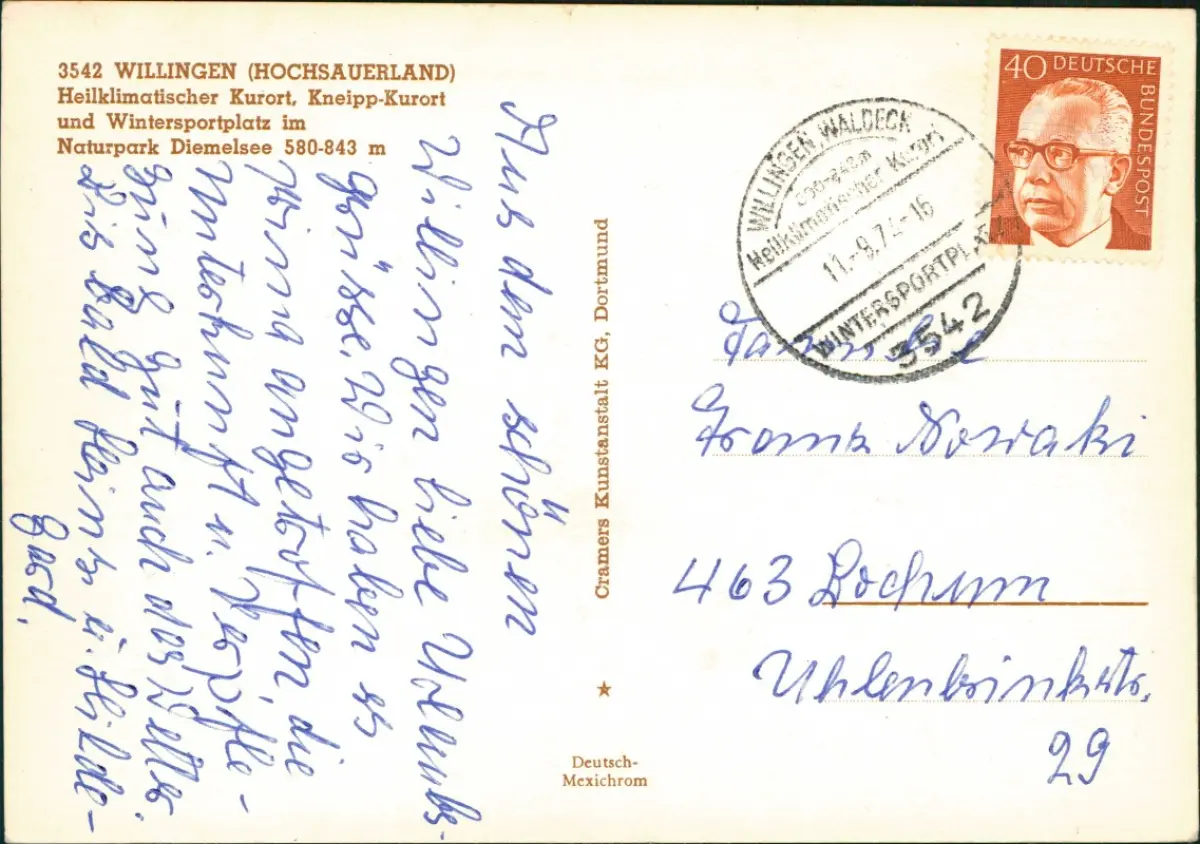 3542 WILLINGEN (HOCHSAUERLAND)
Heilklimatischer Kurort, Kneipp-Kurort
und Wintersportplatz im
Naturpark Diemelsee 580-843 m
Aus dem schönen
Willingen liebe Urlaubs-
grüsse. Wir haben es
prima angetroffen, die
Unterkunft u. Verpfle-
gung gut auch das Wetter.
Bis bald Heinz u. Hilde-
gard.
Cramers Kunstanstalt KG, Dortmund
Deutsch-
Mexichrom
40 DEUTSCHE
BUNDESPOST
WILLINGEN, WALDECK
580-843m
Heilklimatischer Kurort
11.-9.74-16
WINTERSPORTPLATZ
3542
Familie
Franz Nowaki
463 Bochum
Uhlenbrinkstr.
29